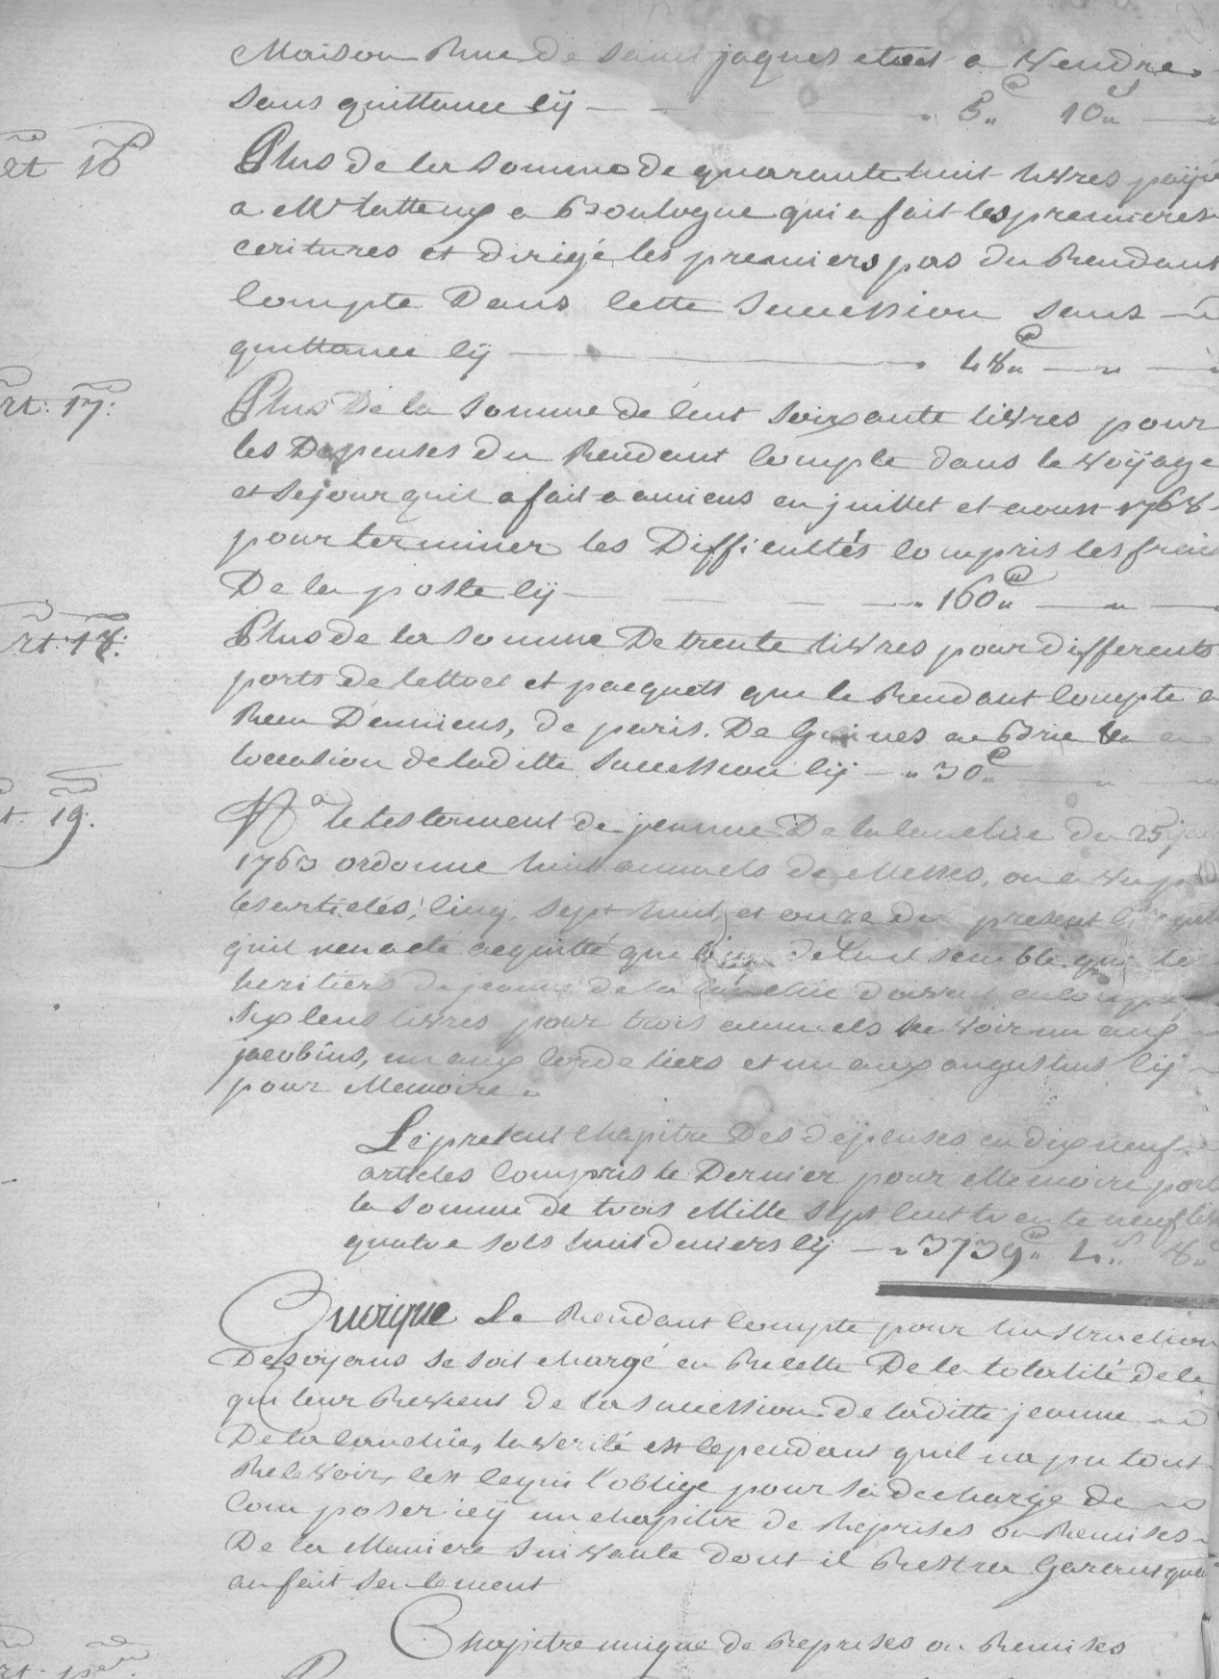 Maison Rue de saint jaques etoit a vendre
sans quittance cÿ 10
et 16
Plus de la somme de quarante huit livres payé
a Mr a Boulogne qui a fait les premieres
ecritures et dirigé les premiers pas du Rendant
Compte Dans Cette Succession sans
quittance cÿ 48
rt: 17:
Plus De la somme de Cent soixante livres pour
les Depenses du Rendant Compte dans le voÿage
et sejour quil a fait a amiens en juillet et aoust 1768
pour terminer les Difficultés Compris les frais
De la poste cÿ 160
rt: 18:
Plus de la somme De trente livres pour differents
ports de lettres et pacquets que le Rendant Compte a
Reçu D'amiens, de paris. De Guines en Brie
loccasion de laditte succession cÿ 30
t. 19.
Na le testament de jeanne De la du 25
1763 ordonne huit annuels de Messes, on a vu
les articles, Cinq, sept huit, et onze du present
quil nen a été acquitté que de la il semble que les
heritiers de jeanne de la doivent encore
six Cens livres pour trois annuels sçavoir un aux
jacobins, un aux Cordeliers et un aux augustins cÿ
pour Memoire.
Le present Chapitre Des depenses en dix neuf
articles Compris le Dernier pour Memoire porte
la Somme de trois Mille sept Cent trente neuf
quatre sols huit deniers cÿ 3739 4 8
Quoique Le Rendant Compte pour linstruction
Desoyans se soit chargé en Recette De la totalité de ce
qui leur Revient de la succession de laditte jeanne
De la la verité est Cependant quil na pu tout
Recevoir, Cest Cequi l'oblige pour sa decharge de
Composer icÿ un chapitre de Reprises ou Remises
De la Maniere Suivante dont il Restera Garant que
au fait seulement
Chapitre unique de Reprises ou Remises